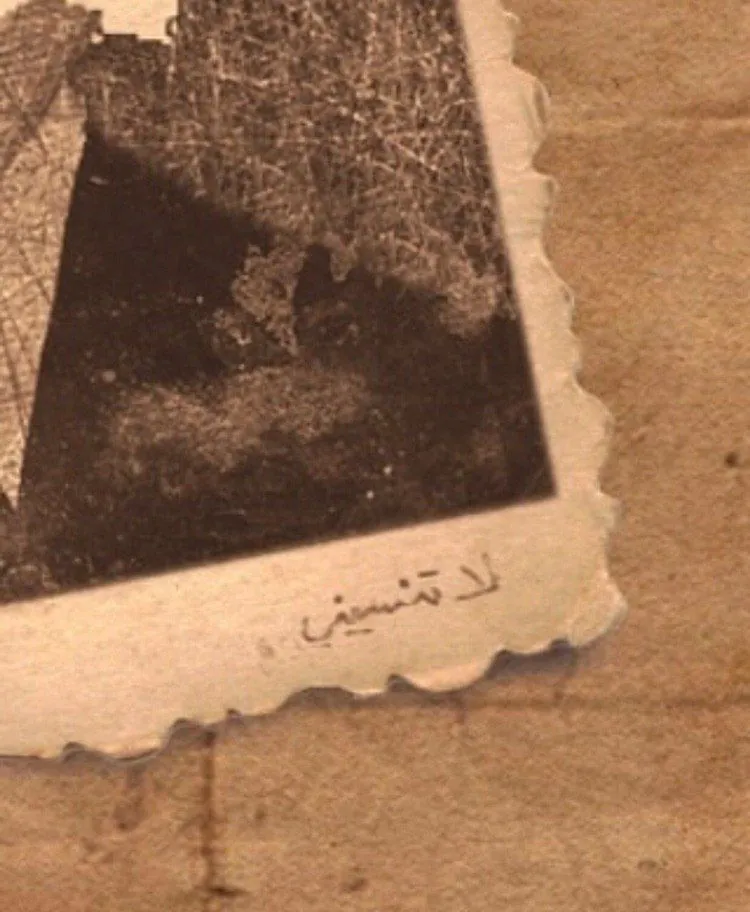 لا تنسيني ..